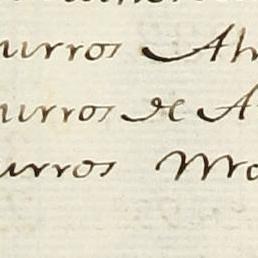 urros Ah
urros de A
urros Mo